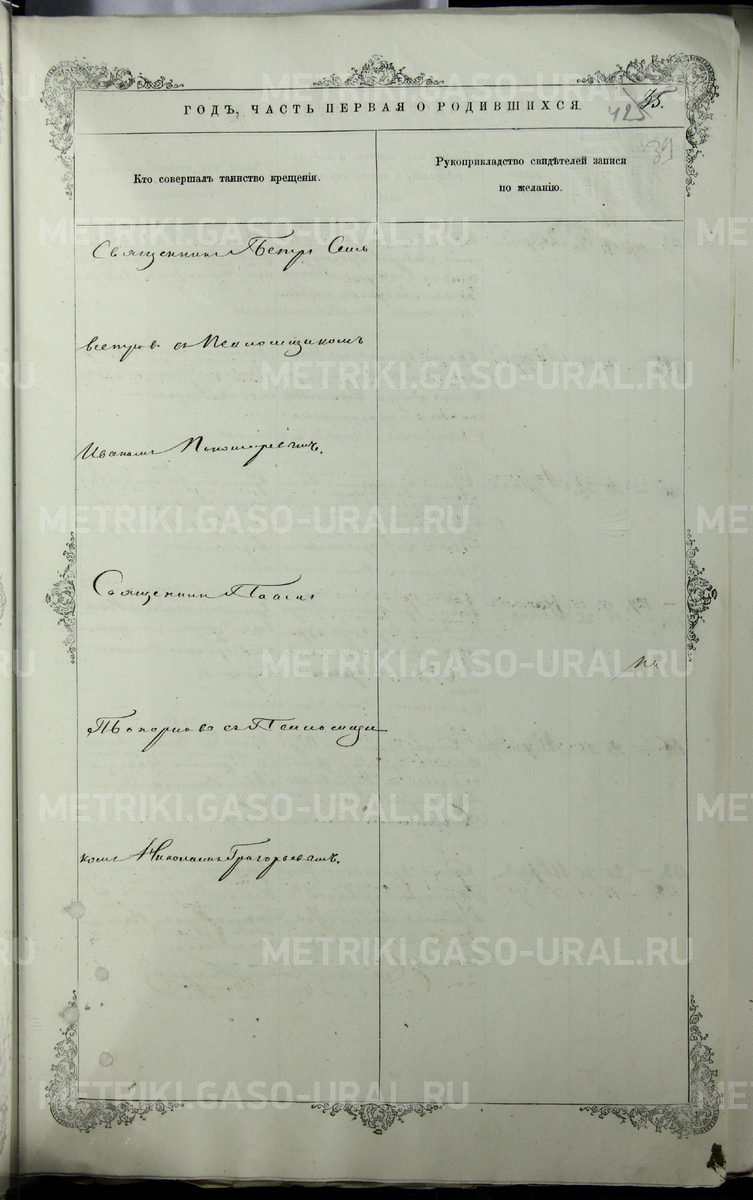 ГОДЪ, ЧАСТЬ ПЕРВАЯ О РОДИВШИХСЯ.
425
Кто совершалъ таинство крещенія.
Рукоприкладство свидѣтелей записи
по желанію.
Священникъ Петръ Силь
вестровъ съ Псаломщикомъ
Иваномъ Пономаревымъ.
Священникъ Павелъ
Топорковъ съ Псаломщи
комъ Николаемъ Григорьевымъ.
METRIKI.GASO-URAL.RU